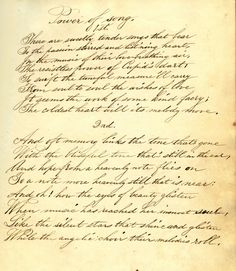 Power of song.
1st.
There are sweetly tender songs that bear
To the passion stirred and list'ning heart,
In the music of their low breathing air,
The resistless power of Cupid's dart;
So swift the tuneful measure
From soul to soul the wishes of love
It seems the work of some kind fairy;
The coldest heart will its melody move.
2nd.
And oft memory links the tone that's gone
With the blissful tone that's still in the ear,
And hope from a heavenly note flies on
To a note more heavenly still that is near;
And oh! how the eyes of beauty glisten
When music has reached her inmost soul,
Like the silent stars that shine and glisten
While the angelic choir their melodies roll.